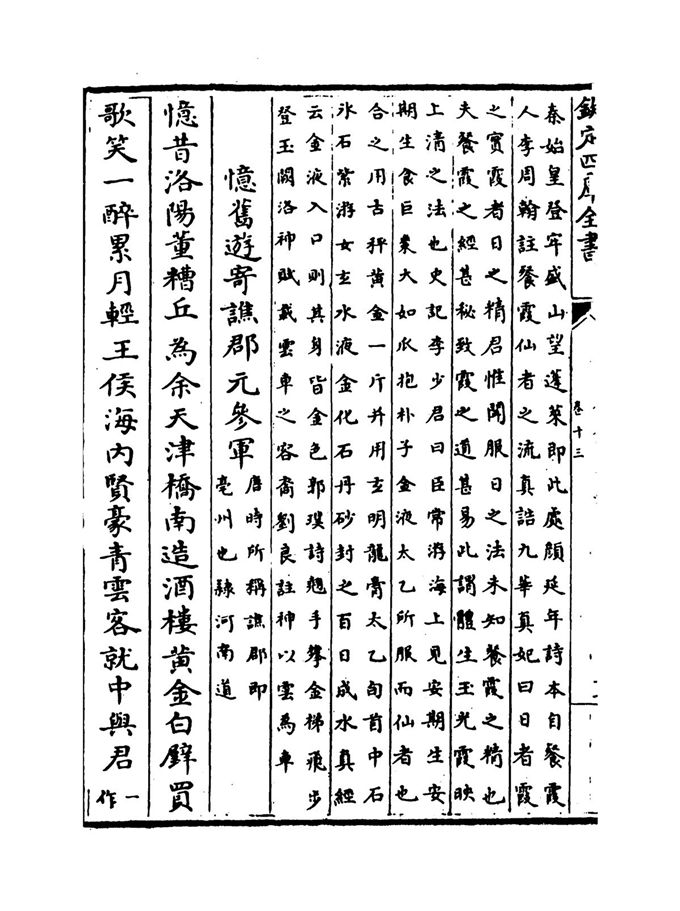 欽定四庫全書
卷十三
秦始皇登牢盛山望蓬萊即此處顔延年詩本自餐霞
人李周翰註餐霞仙者之流真誥九華真妃曰日者霞
之實霞者日之精君惟聞服日之法未知餐霞之精也
夫餐霞之經甚秘致霞之道甚易此謂體生玉光霞映
上清之法也史記李少君曰臣常游海上見安期生安
期生食巨棗大如瓜抱朴子金液太乙所服而仙者也
合之用古秤黄金一斤并用玄明龍膏太乙旬首中石
氷石紫游女玄水液金化石丹砂封之百日成水真經
云金液入口則其身皆金色郭璞詩翹手攀金梯飛步
登玉闕洛神賦載雲車之容裔劉良註神以雲為車
憶舊遊寄譙郡元參軍
唐時所稱譙郡即
亳州也隸河南道
憶昔洛陽董糟丘為余天津橋南造酒樓黄金白璧買
歌笑一醉累月輕王侯海内賢豪青雲客就中與君
一
作